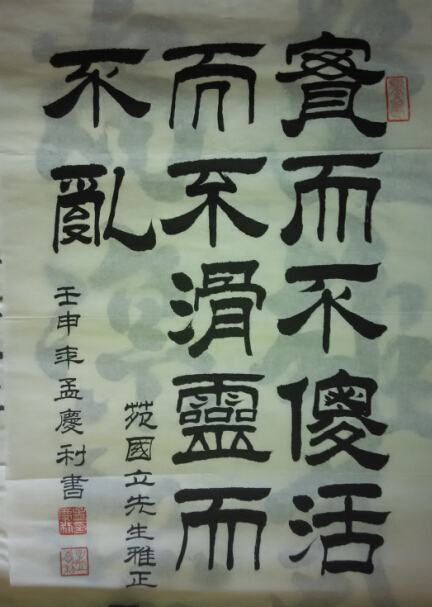 實而不傻活
而不滑靈而
不亂
苑國立先生雅正
壬申年孟慶利書